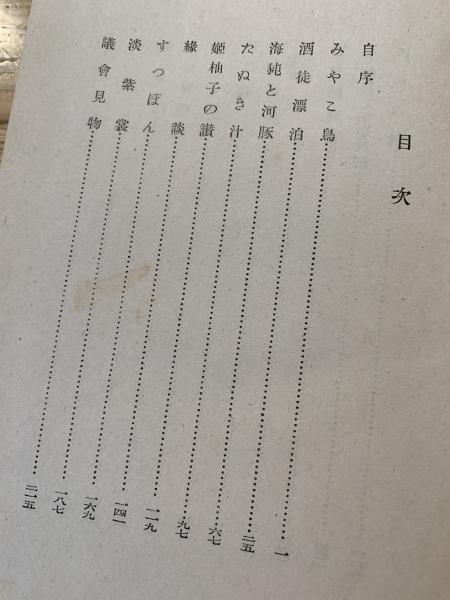 目次
自序
みやこ鳥……一
酒徒漂泊……二五
海豘と河豚……六七
たぬき汁……九七
姬柚子の讃……一一九
緣談……一四一
すつぽん……一六九
淡紫裳……一八七
議會見物……二一五